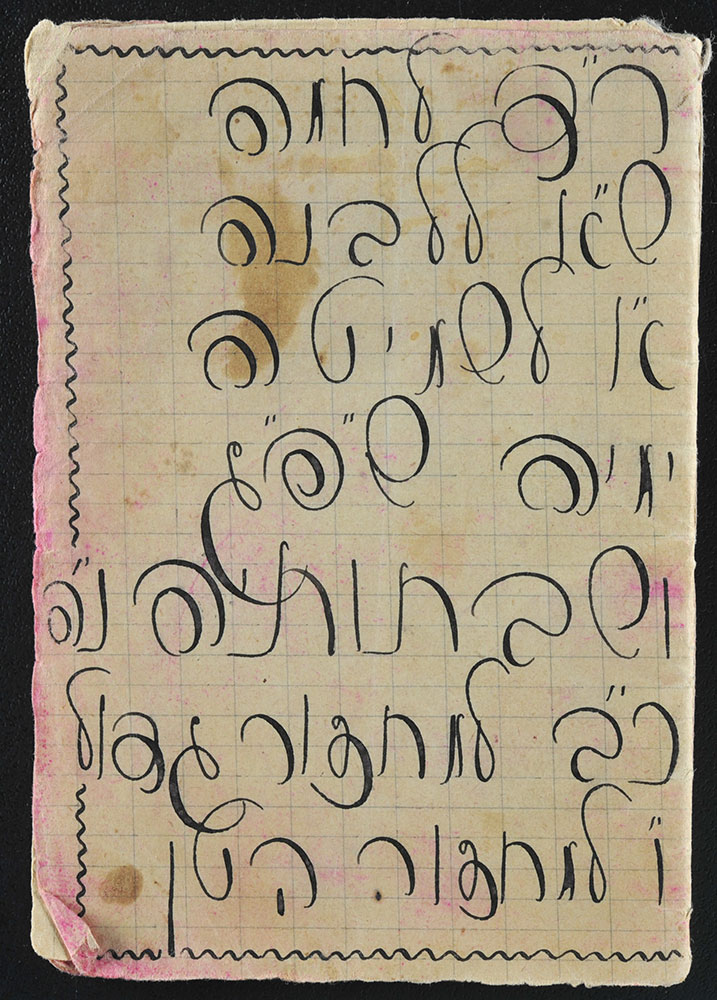 ר"ד לחמה
ש"א ללבנה
א" לשמיטה
ימיה ש"פ"ג
ושבתותיה נ"ה
כ"ב למחזור גדול
ו" למחזור הקטן